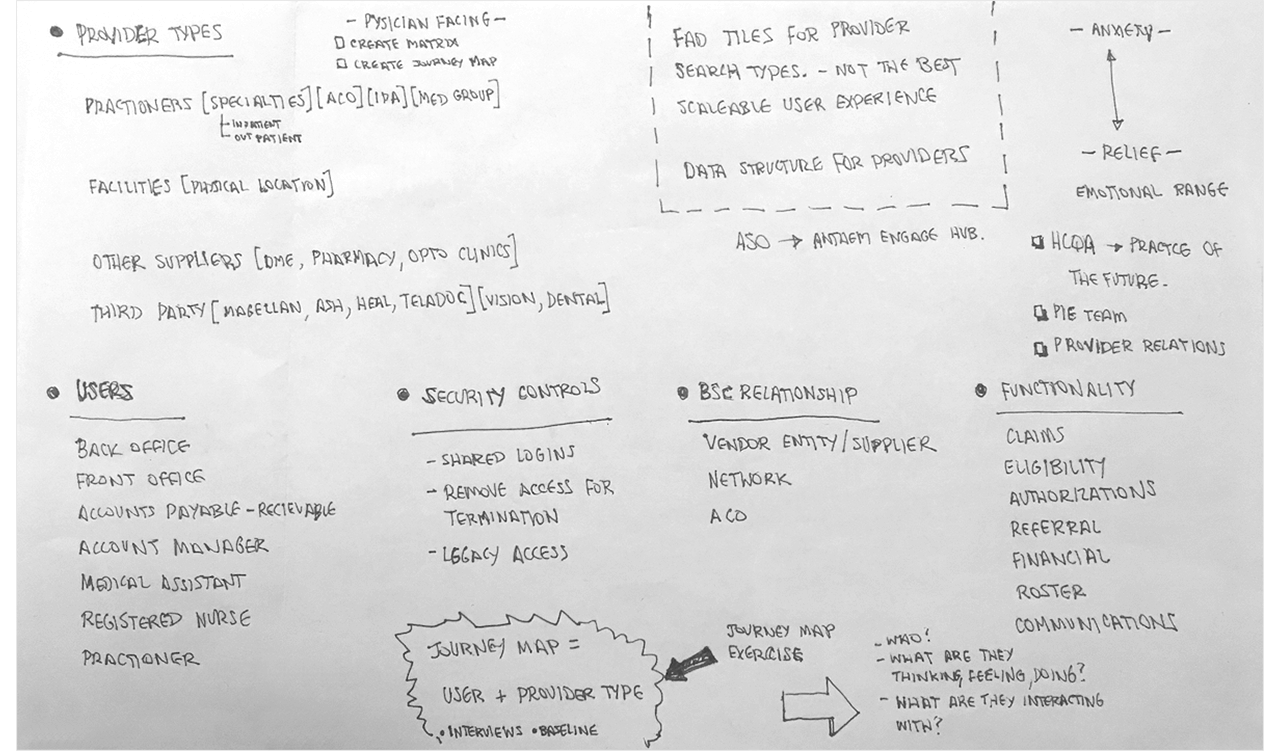 PROVIDER TYPES
- PYSICIAN FACING -
CREATE MATRIX
CREATE JOURNEY MAP
PRACTIONERS [SPECIALTIES] [ACO] [IPA] [MED GROUP]
INPATIENT
OUT PATIENT
FACILITIES [PHYSICAL LOCATION]
OTHER SUPPLIERS [DME, PHARMACY, OPTO CLINICS]
THIRD PARTY [MAGELLAN, ASH, HEAL, TELADOC] [VISION, DENTAL]
FAD TILES FOR PROVIDER
SEARCH TYPES. - NOT THE BEST
SCALEABLE USER EXPERIENCE
DATA STRUCTURE FOR PROVIDERS
ASO → ANTHEM ENGAGE HUB.
- ANXIETY -
- RELIEF -
EMOTIONAL RANGE
HCQA → PRACTCE OF
THE FUTURE.
PIE TEAM
PROVIDER RELATIONS
USERS
BACK OFFICE
FRONT OFFICE
ACCOUNTS PAYABLE - RECIEVABLE
ACCOUNT MANAGER
MEDICAL ASSISTANT
REGISTERED NURSE
PRACTIONER
SECURITY CONTROLS
- SHARED LOGINS
- REMOVE ACCESS FOR
TERMINATION
- LEGACY ACCESS
BSC RELATIONSHIP
VENDOR ENTITY/SUPPLIER
NETWORK
ACO
FUNCTIONALITY
CLAIMS
ELIGIBILITY
AUTHORIZATIONS
REFERRAL
FINANCIAL
ROSTER
COMMUNICATIONS
JOURNEY MAP =
USER + PROVIDER TYPE
• INTERVIEWS • BASELINE
JOURNEY MAP
EXERCISE
- WHO?
- WHAT ARE THEY
THINKING, FEELING, DOING?
- WHAT ARE THEY INTERACTING
WITH?